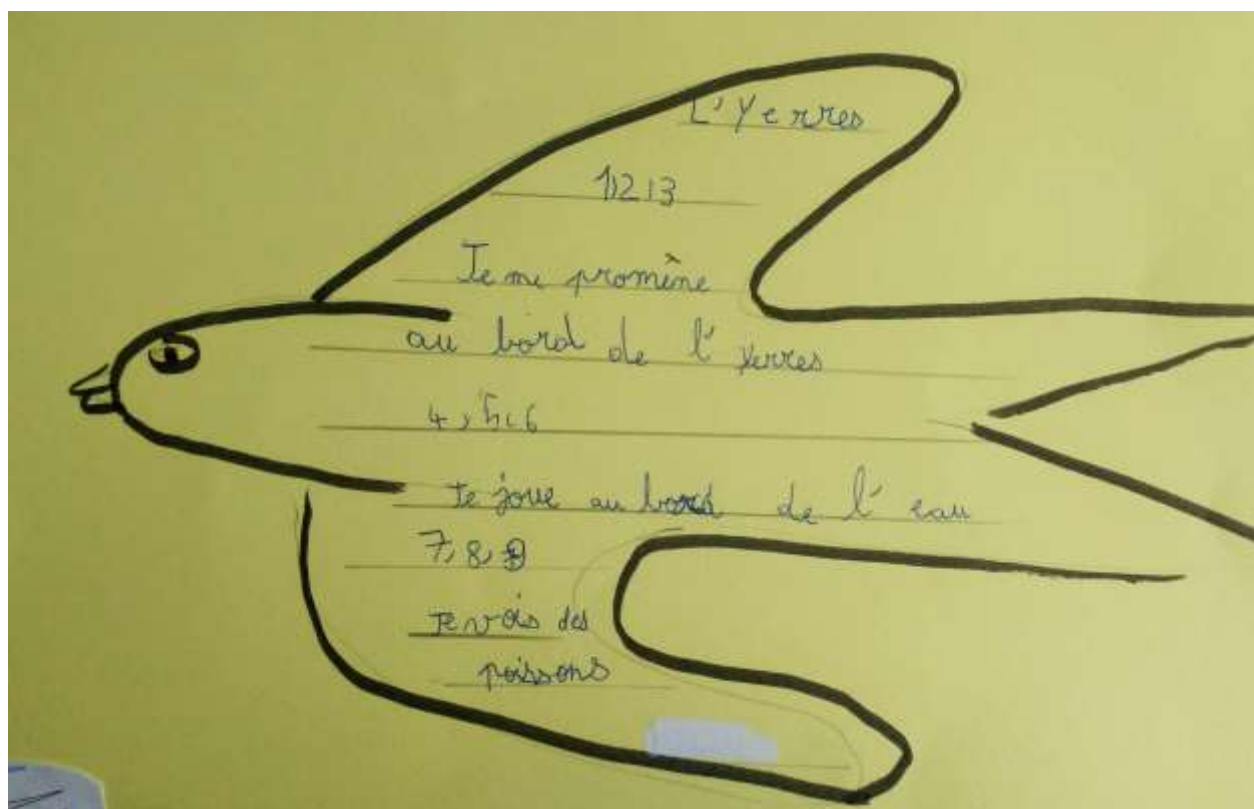 L'Yerres
1,2,3
Je me promène
au bord de l'Yerres
4,5,6
Je joue au bord de l'eau
7,8,9
Je vois des
poissons